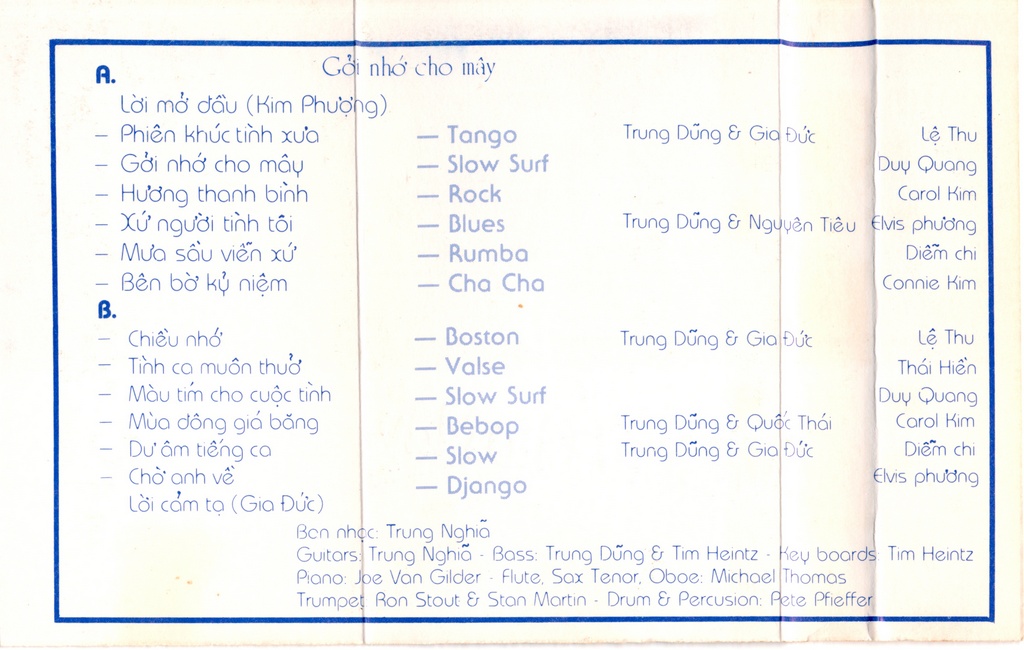 A. Gởi nhớ cho mây
Lời mở đầu (Kim Phượng)
– Phiên khúc tình xưa — Tango Trung Dũng & Gia Đức Lệ Thu
– Gởi nhớ cho mây — Slow Surf Duy Quang
– Hương thanh bình — Rock Carol Kim
– Xứ người tình tôi — Blues Trung Dũng & Nguyên Tiêu Elvis phương
– Mưa sầu viễn xứ — Rumba Diễm chi
– Bên bờ kỷ niệm — Cha Cha Connie Kim
B.
– Chiều nhớ — Boston Trung Dũng & Gia Đức Lệ Thu
– Tình ca muôn thuở — Valse Thái Hiền
– Màu tím cho cuộc tình — Slow Surf Duy Quang
– Mùa đông giá băng — Bebop Trung Dũng & Quốc Thái Carol Kim
– Dư âm tiếng ca — Slow Trung Dũng & Gia Đức Diễm chi
– Chờ anh về — Django Elvis phương
Lời cảm tạ (Gia Đức)
Ban nhạc: Trung Nghiã
Guitars: Trung Nghiã - Bass: Trung Dũng & Tim Heintz - Key boards: Tim Heintz
Piano: Joe Van Gilder - Flute, Sax Tenor, Oboe: Michael Thomas
Trumpet: Ron Stout & Stan Martin - Drum & Percusion: Pete Pfieffer